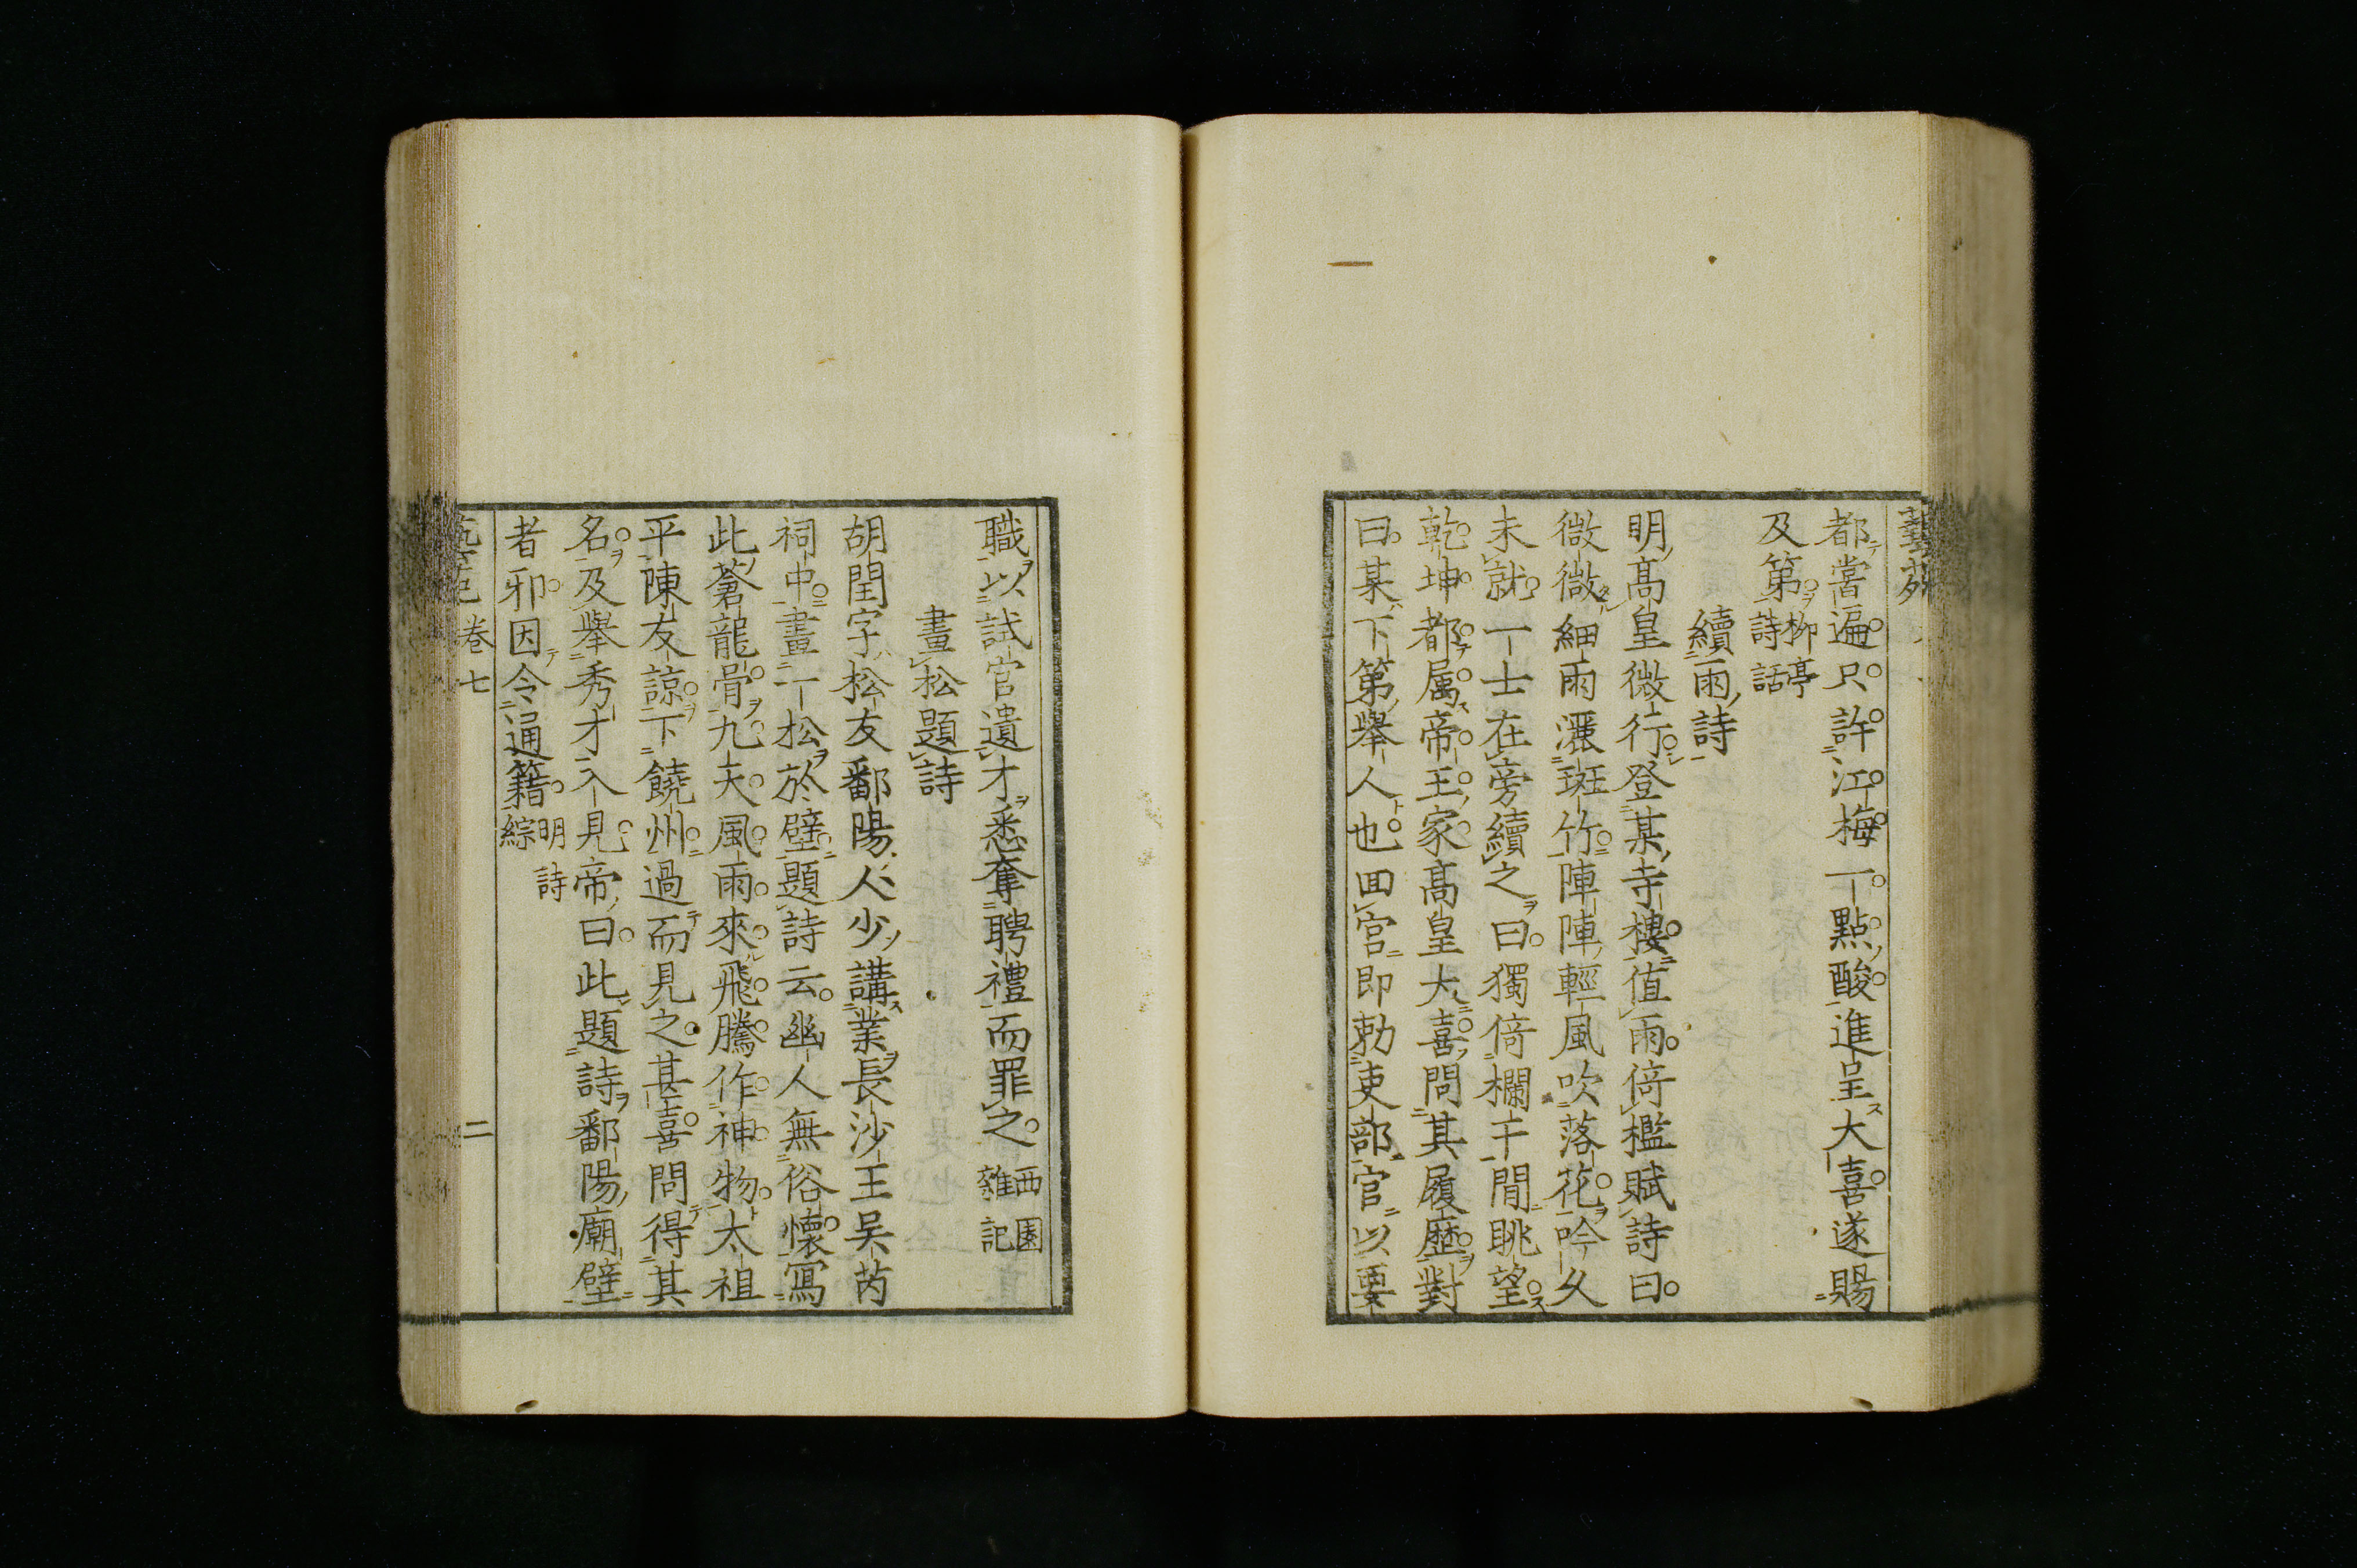 藝苑
都嘗遍只許江梅一點酸進呈大喜遂賜
及第柳亭
詩話
續雨詩
明高皇微行登某寺樓值雨倚檻賦詩曰
微微細雨灑斑竹陣陣輕風吹落花吟久
未就一士在旁續之曰獨倚欄干閒眺望
乾坤都属帝王家高皇大喜問其履歷對
曰某下第舉人也回宫即勅吏部官以要
職以試官遺才悉奪聘禮而罪之西園
雜記
畫松題詩
胡閏字松友鄱陽人少講業長沙王吴芮
祠中畫一松於壁題詩云幽人無俗懷寫
此蒼龍骨九天風雨來飛騰作神物太祖
平陳友諒下饒州過而見之甚喜問得其
名及舉秀才入見帝曰此題詩鄱陽廟壁
者邪因令通籍明詩
綜
卷七 二